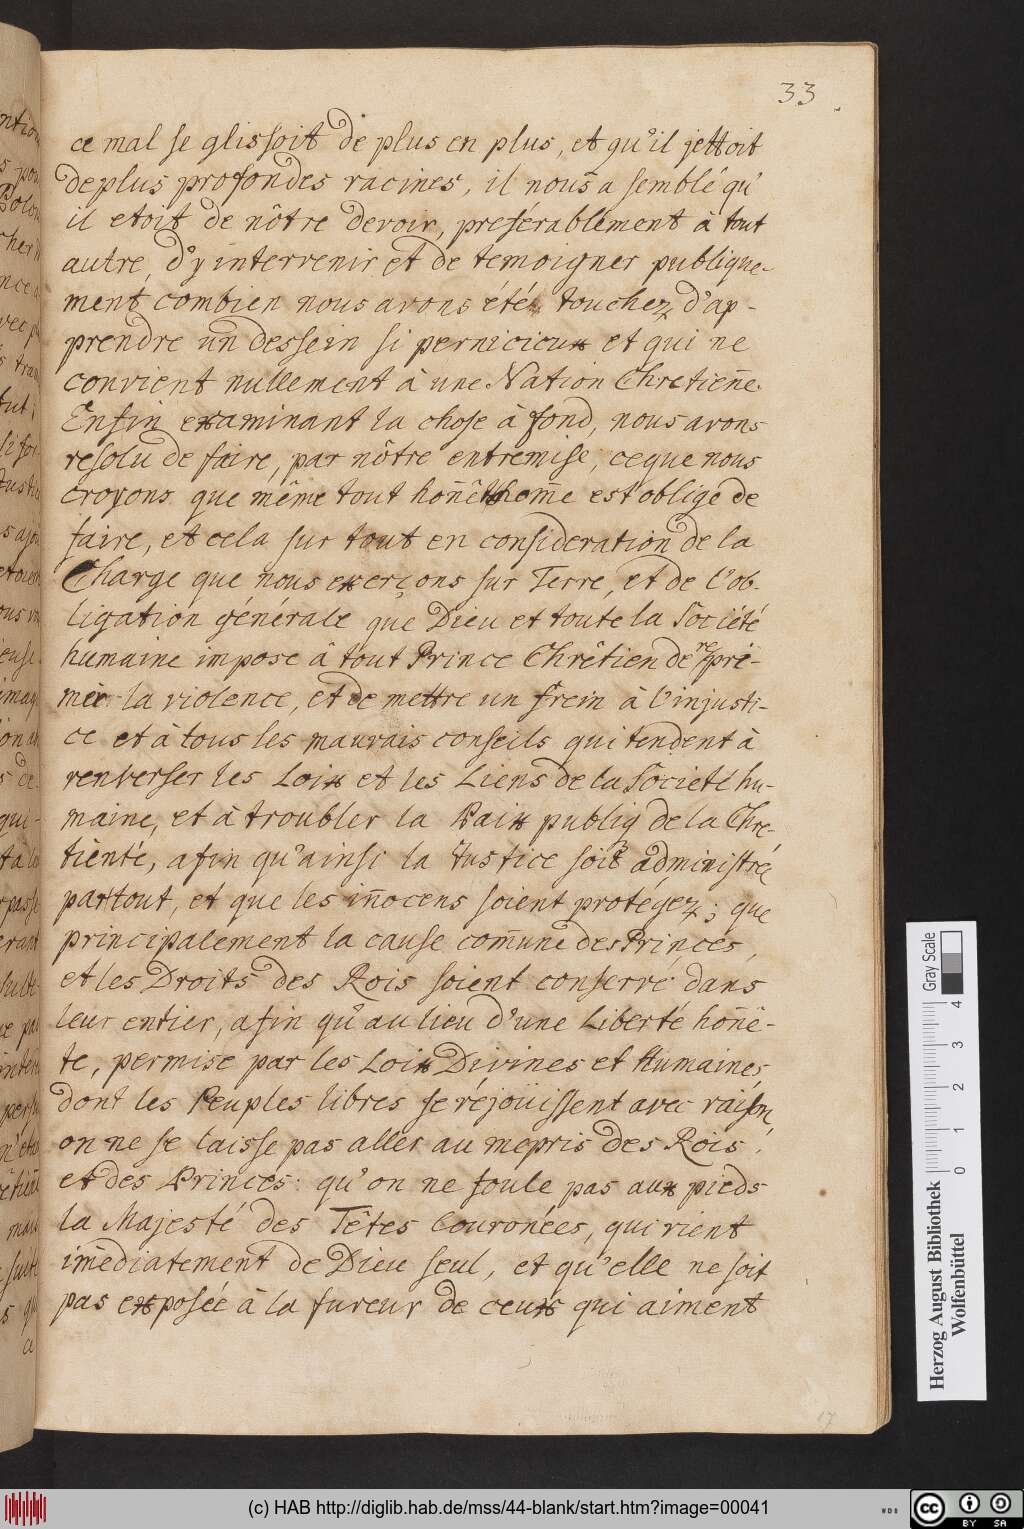 33.
ce mal se glissoit de plus en plus, et qu'il jettoit
deplus profondes racines, il nous a semblé qu'
il etoit de nôtre devoir, preférablement à tout
autre, d'y intervenir et de temoigner publique-
ment combien nous avons été touchez d'ap-
prendre un dessein si pernicieux et qui ne
convient nullement à une Nation Chretien̄e.
Enfin examinant la chose à fond, nous avons
resolu de faire, par nôtre entremise, ceque nous
croyons que même tout hon̄êthom̄e est obligé de
faire, et cela sur tout en consideration de la
Charge que nous exerçons sur Terre, et de l'ob-
ligation générale que Dieu et toute la Société
humaine impose à tout Prince Chrêtien de repri-
mer la violence, et de mettre un frein à l'injusti-
ce et à tous les mauvais conseils qui tendent à
renverser les Loix et les Liens de la Société hu-
maine, et à troubler la Paix publiq de la Chre-
tienté, afin qu'ainsi la Justice soit administré
partout, et que les in̄ocens soient protégez; que
principalement la cause com̄une des Princes,
et les Droits des Rois soient conservé dans
leur entier, afin qu'au lieu d'une Liberté hon̄ê-
te, permise par les Loix Divines et Humaines
dont les Peuples libres se réjoüissent avec raison,
on ne se laisse pas aller au mepris des Rois.
et des Princes: qu'on ne foule pas aux pieds
la Majesté des Têtes Couronées, qui vient
im̄ediatement de Dieu seul, et qu'elle ne soit
pas exposée à la fureur de ceux qui aiment
17
Gray Scale
0 1 2 3 4
Herzog August Bibliothek
Wolfenbüttel
(c) HAB http://diglib.hab.de/mss/44-blank/start.htm?image=00041
WDB
cc BY SA